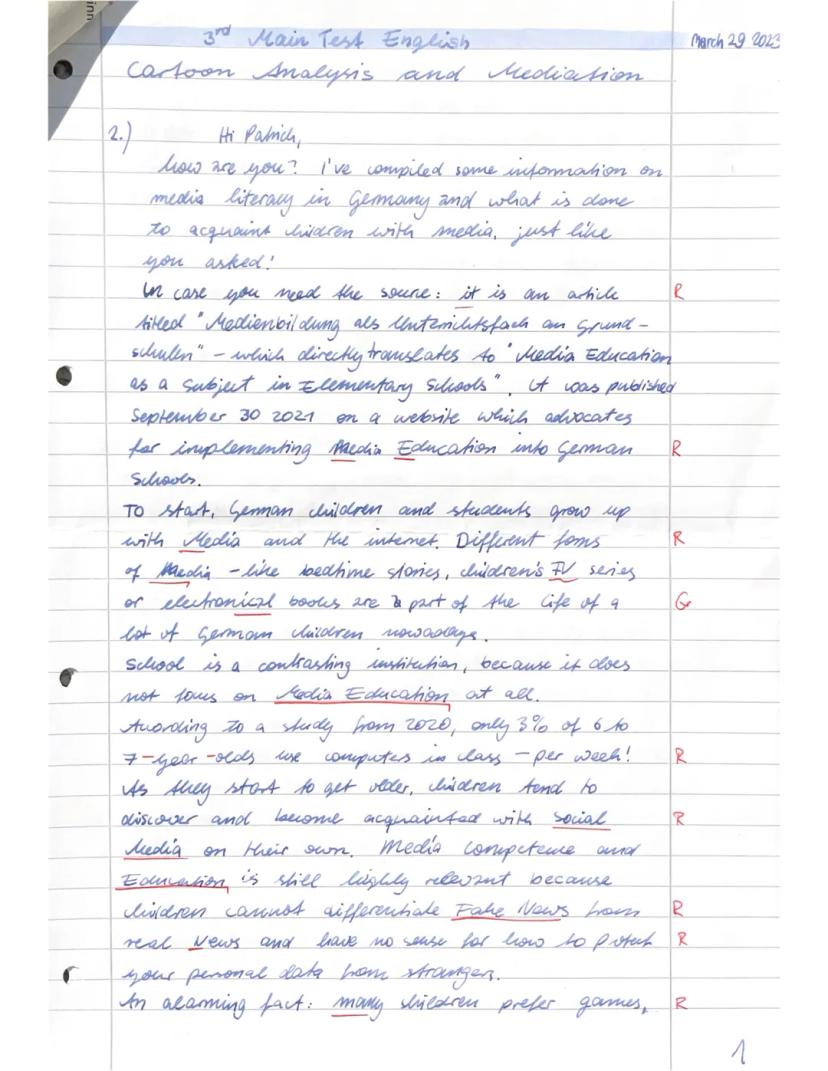 3rd Main Test English
March 29 2023
Cartoon Analysis and Mediation
2.) Hi Patrick,
how are you? I've compiled some information on
media literacy in Germany and what is done
to acquaint children with media, just like
you asked!
In case you need the source: it is an article R
titled "Medienbildung als Unterrichtsfach an Grund-
schulen" - which directly translates to "Media Education
as a subject in Elementary Schools". It was published
September 30 2021 on a website which advocates
for implementing Media Education into German R
Schools.
To start, German children and students grow up
with Media and the internet. Different forms R
of Media - like bedtime stories, children's TV series
or electronical books are a part of the life of a Gr
lot of German children nowadays.
School is a contrasting institution, because it does
not focus on Media Education at all.
According to a study from 2020, only 3% of 6 to
7-year-olds use computers in class - per week! R
As they start to get older, children tend to
discover and become acquainted with Social R
Media on their own. Media competence and
Education is still highly relevant because
children cannot differentiate Fake News from R
real News and have no sense for how to protect R
your personal data from strangers.
An alarming fact: many children prefer games, R
1